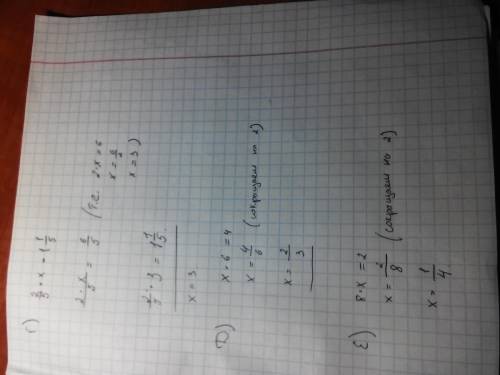 Г) 2/5 · x = 1 1/5
2·x/5 = 6/5 (т.е. 2·x=6
x = 6/2
x = 3)
2/5 · 3 = 1 1/5
x = 3.
Д) x·6=4
x = 4/6 (сокращаем на 2)
x = 2/3
Е) 8·x=2
x = 2/8 (сокращаем на 2)
x = 1/4.